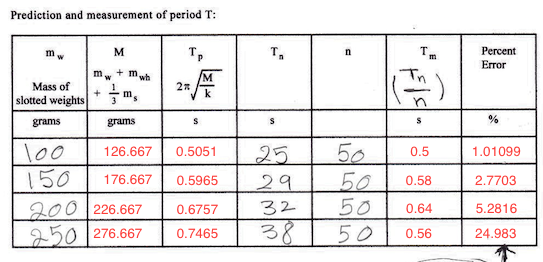 Prediction and measurement of period T:
m w M T p T n n T m Percent Error
Mass of slotted weights m w + m wh + 1/3 m s 2π √M/k (Tn/n)
grams grams s s s %
100 126.667 0.5051 25 50 0.5 1.01099
150 176.667 0.5965 29 50 0.58 2.7703
200 226.667 0.6757 32 50 0.64 5.2816
250 276.667 0.7465 38 50 0.56 24.983